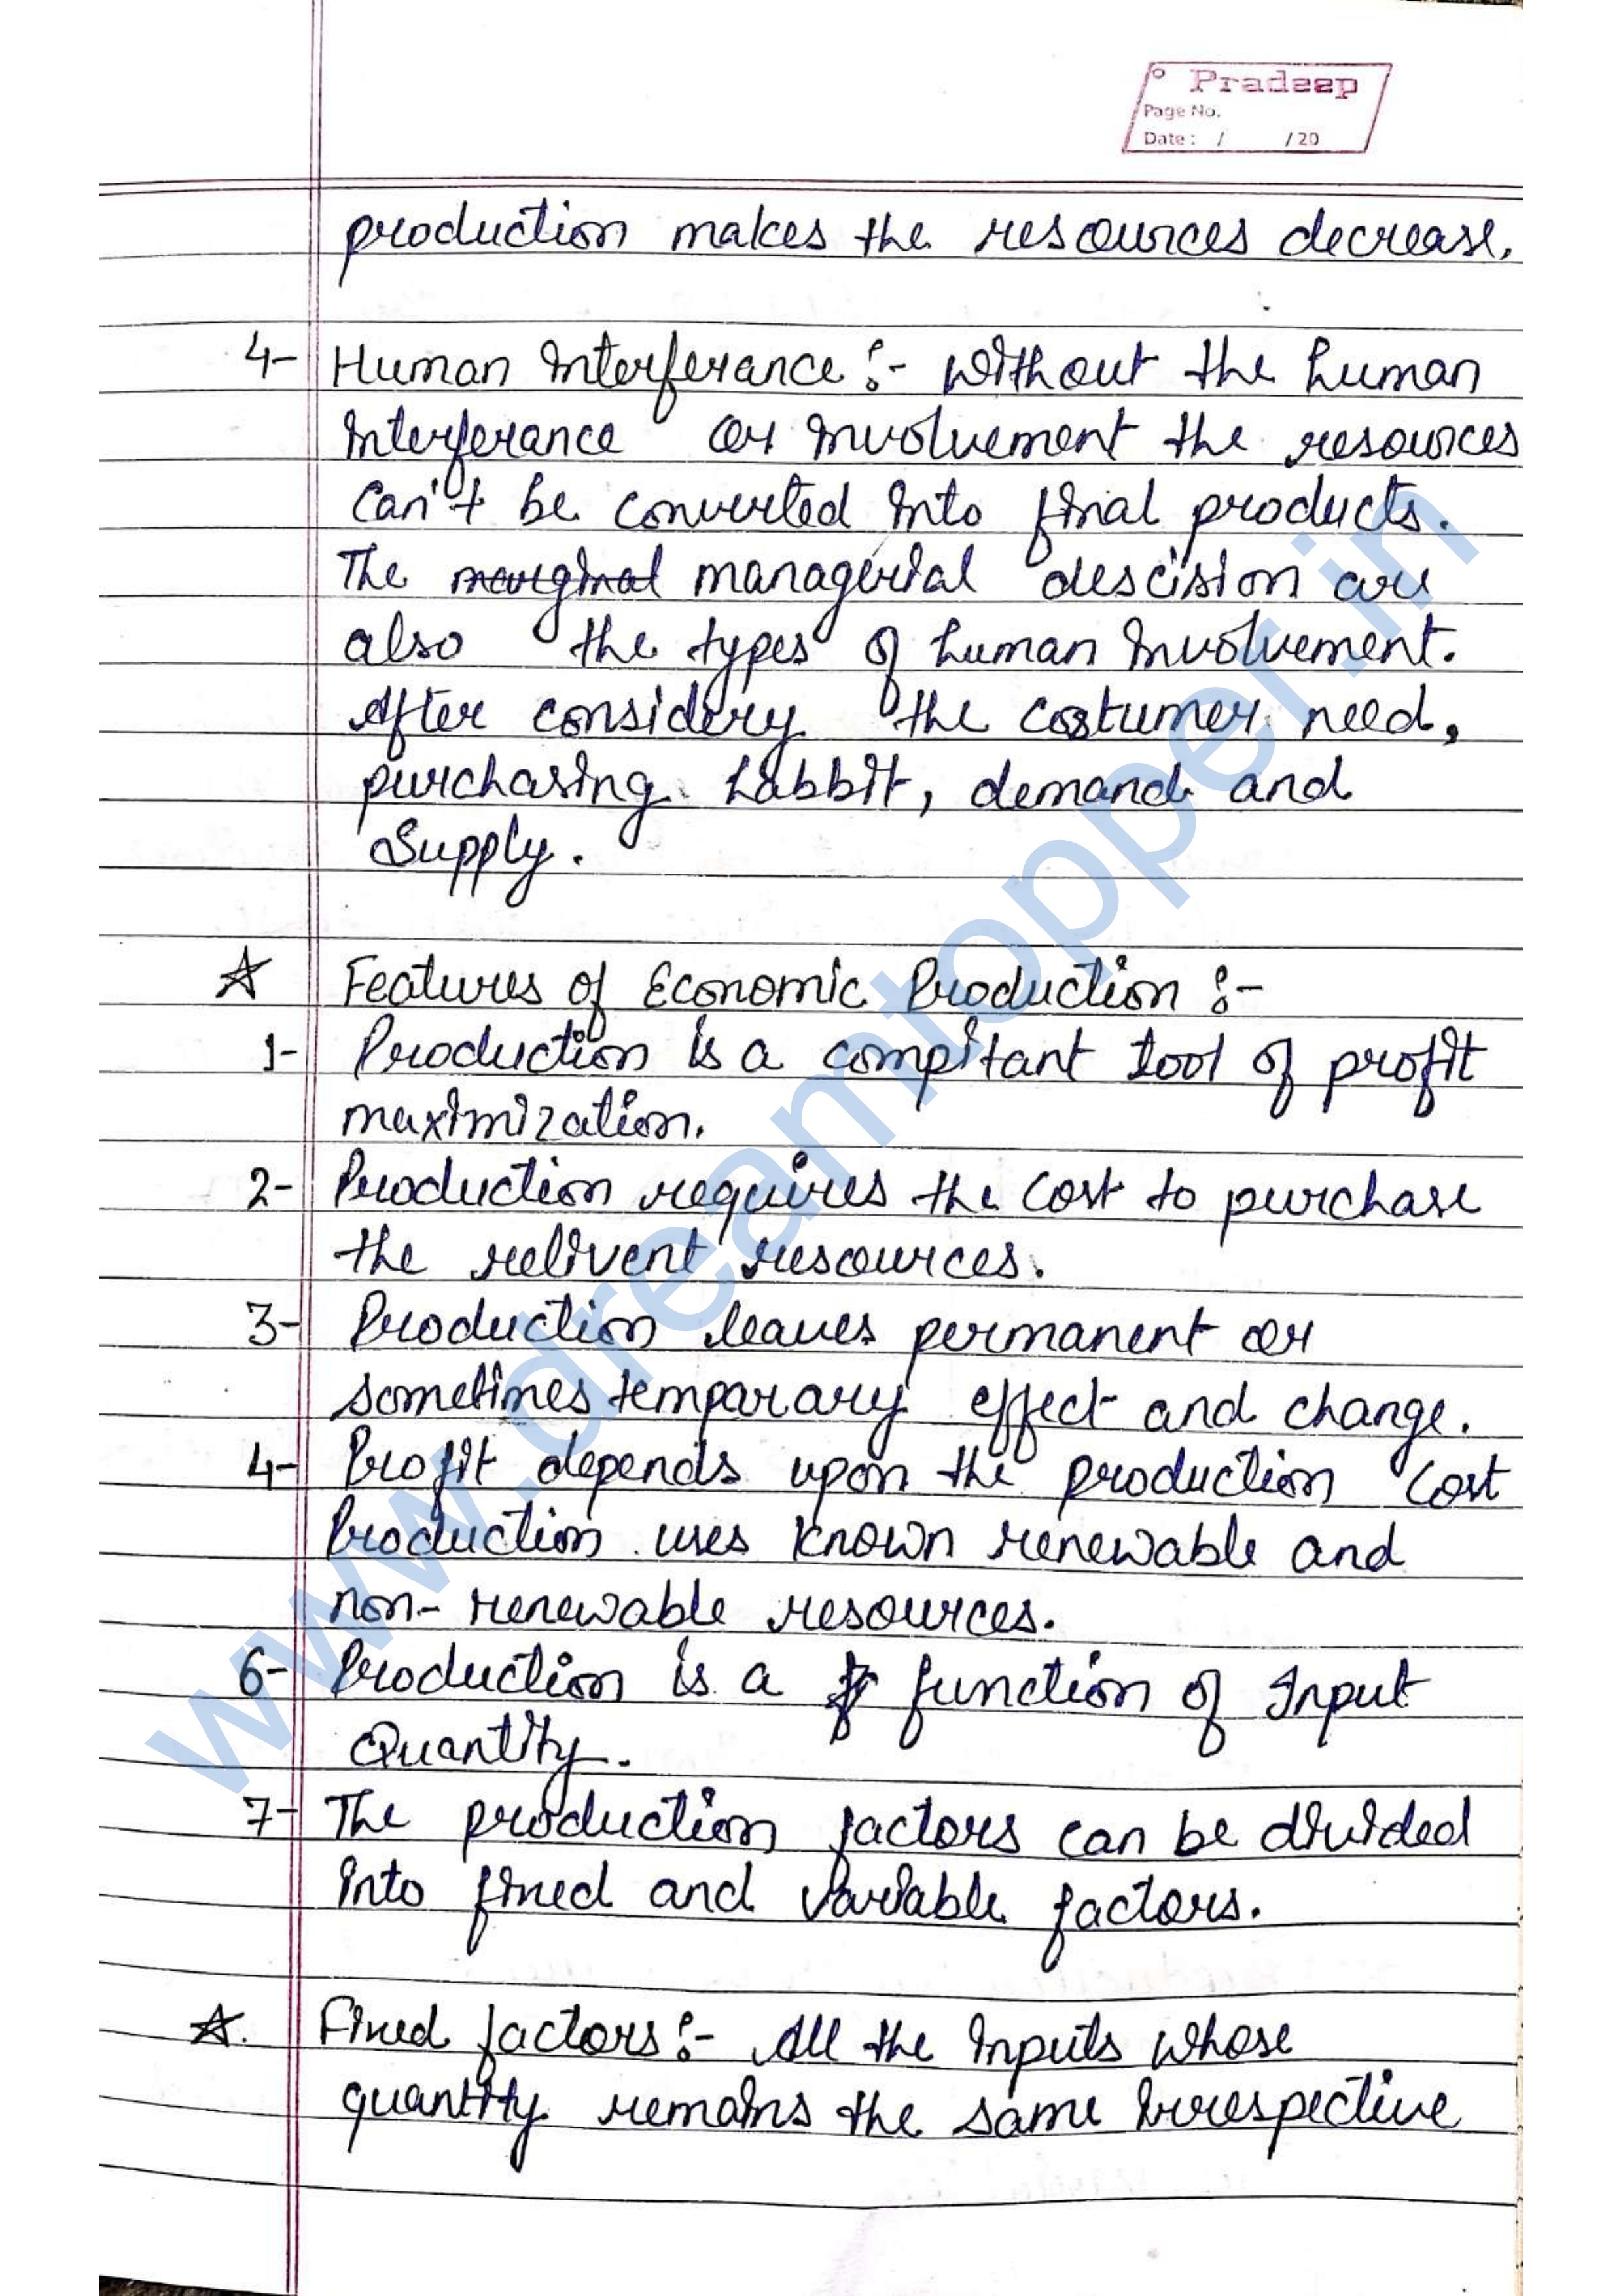 Pradeep
Page No.
Date : / / 20
production makes the resources decrease.
4- Human Interferance :- Without the human
Interferance or Involvement the resources
Can't be converted Into final products.
The marginal managerial descision are
also the types of human Involvement.
After considery the costumer need,
purchasing habbit, demand and
Supply.
☆ Features of Economic Production :-
1- Production is a compitant tool of profit
maximization.
2- Production requires the Cost to purchase
the relivent resources.
3- Production leaves permanent or
sometimes temparary effect and change.
4- Profit depends upon the production Cost
Production uses known renewable and
non- renewable resources.
6- Production is a function of Input
Quantity.
7- The production factors can be divided
into fixed and Variable factors.
☆. Fixed factors :- All the Inputs whose
quantity remains the same Irrespective
www.dreamtopper.in